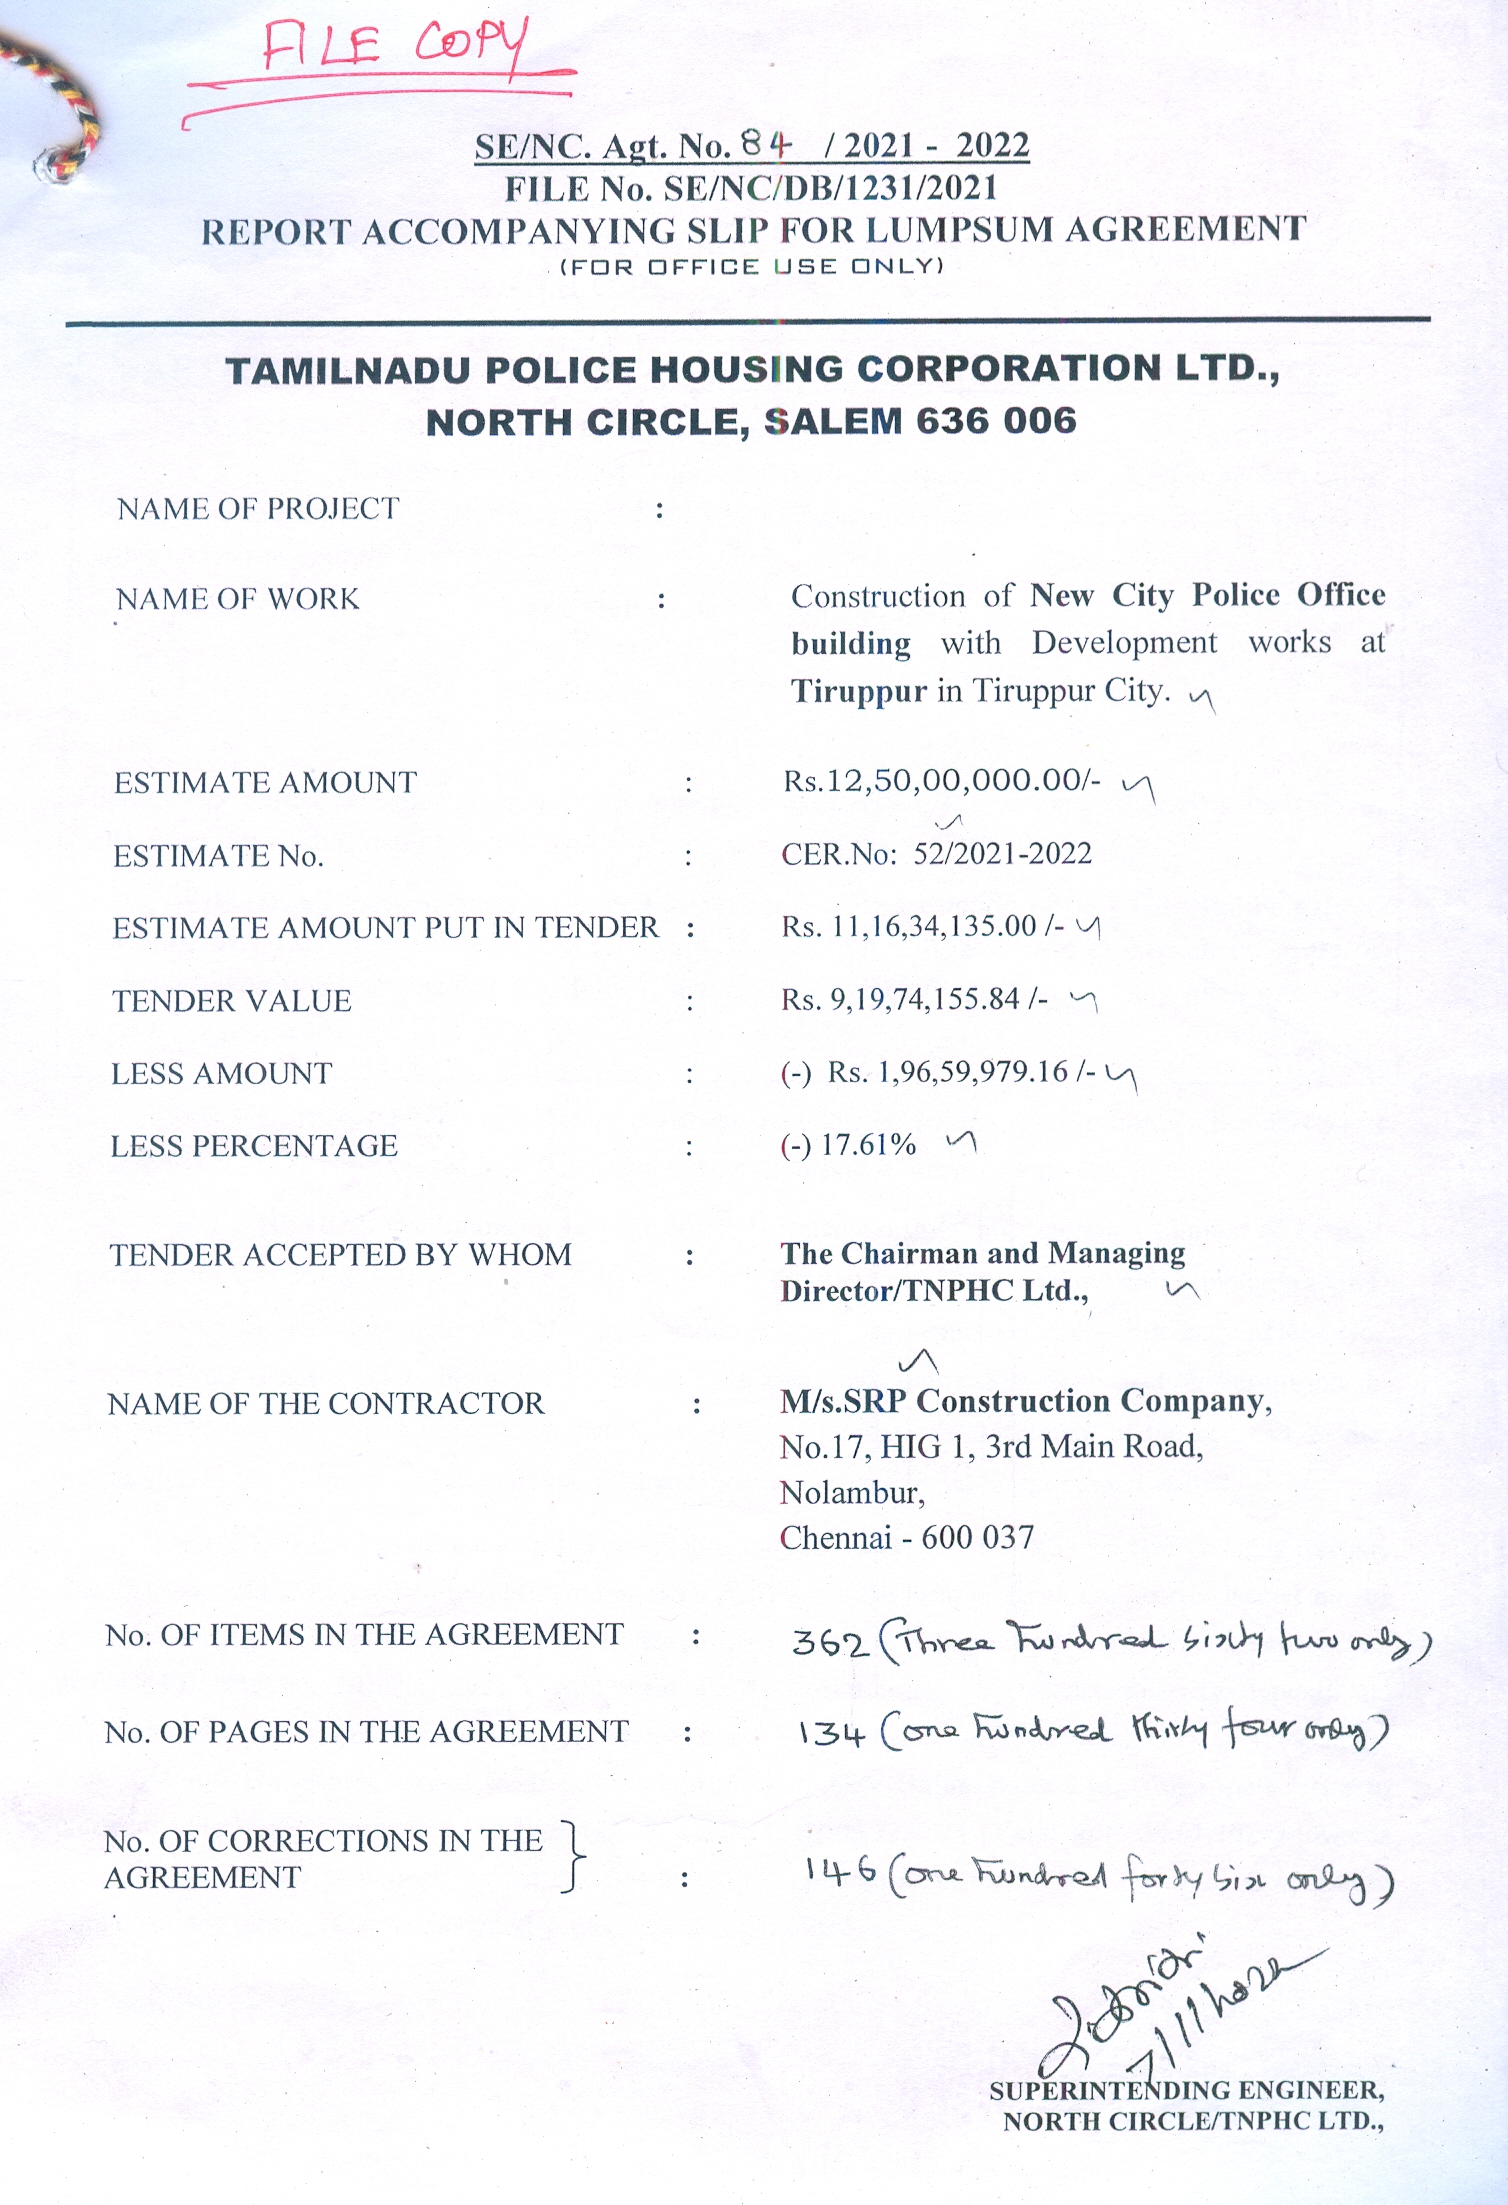 FILE COPY
SE/NC. Agt. No. 84 / 2021 - 2022
FILE No. SE/NC/DB/1231/2021
REPORT ACCOMPANYING SLIP FOR LUMPSUM AGREEMENT
(FOR OFFICE USE ONLY)
TAMILNADU POLICE HOUSING CORPORATION LTD.,
NORTH CIRCLE, SALEM 636 006
NAME OF PROJECT :
NAME OF WORK : Construction of New City Police Office
building with Development works at
Tiruppur in Tiruppur City.
ESTIMATE AMOUNT : Rs.12,50,00,000.00/-
ESTIMATE No. : CER.No: 52/2021-2022
ESTIMATE AMOUNT PUT IN TENDER : Rs. 11,16,34,135.00 /-
TENDER VALUE : Rs. 9,19,74,155.84 /-
LESS AMOUNT : (-) Rs. 1,96,59,979.16 /-
LESS PERCENTAGE : (-) 17.61%
TENDER ACCEPTED BY WHOM : The Chairman and Managing
Director/TNPHC Ltd.,
NAME OF THE CONTRACTOR : M/s.SRP Construction Company,
No.17, HIG 1, 3rd Main Road,
Nolambur,
Chennai - 600 037
No. OF ITEMS IN THE AGREEMENT : 362 (Three hundred sixty two only)
No. OF PAGES IN THE AGREEMENT : 134 (one hundred thirty four only)
No. OF CORRECTIONS IN THE
AGREEMENT : 146 (one hundred forty six only)
SUPERINTENDING ENGINEER,
NORTH CIRCLE/TNPHC LTD.,